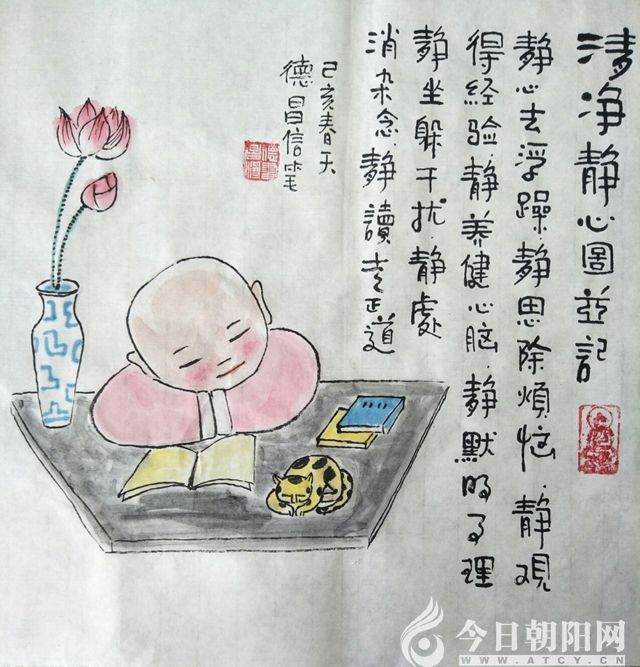 清净静心圖並記
静心去浮躁静思除煩恼.静观
得经验.静养健心脑.静默明事理
静坐躲干扰.静處
消杂念.静讀走正道
己亥春天
德昌信笔
今日朝阳网
WWW.ATCY.CN